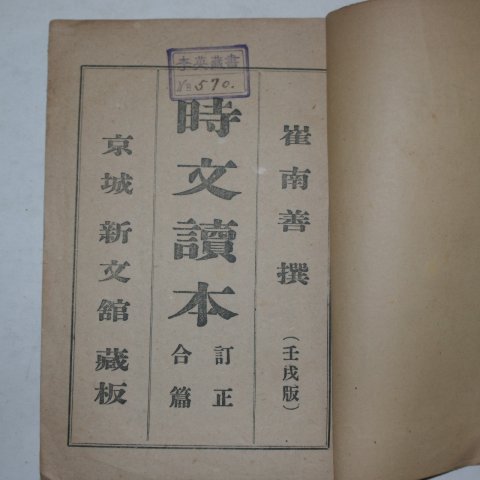 李英藏書
570.
崔南善 撰
(壬戌版)
時文讀本
訂正
合篇
京城 新文館 藏板